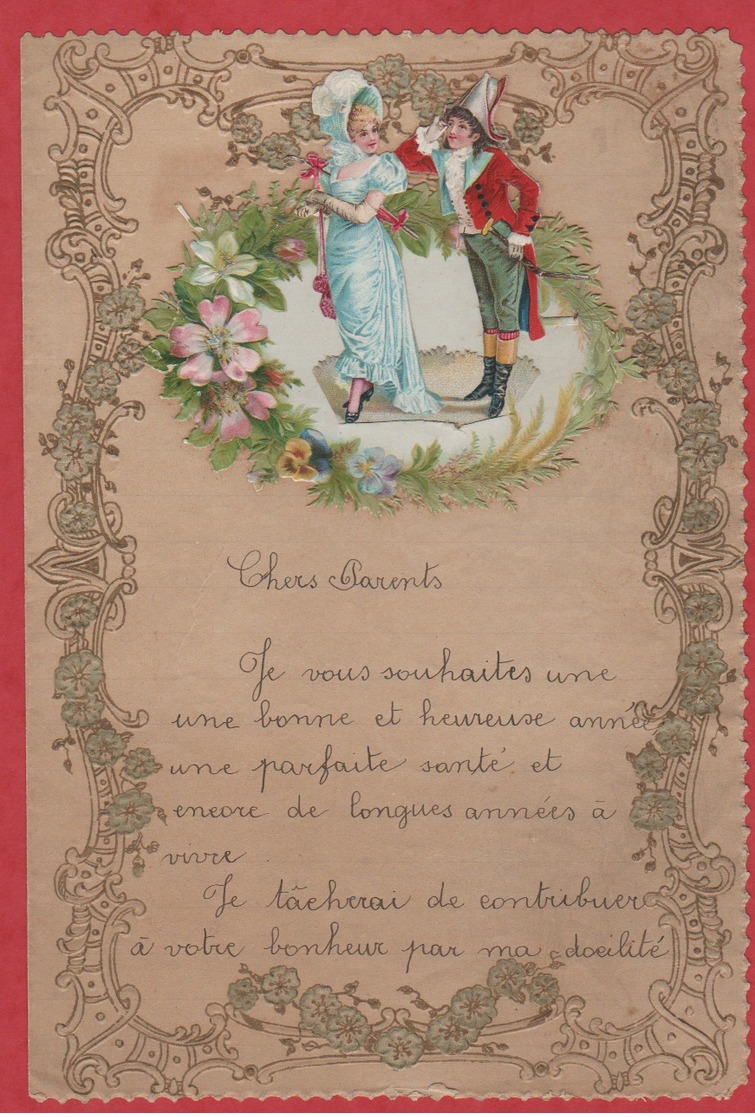 Chers Parents
Je vous souhaites une
une bonne et heureuse année
une parfaite santé et
encore de longues années à
vivre.
Je tâcherai de contribuer
à votre bonheur par ma docilité